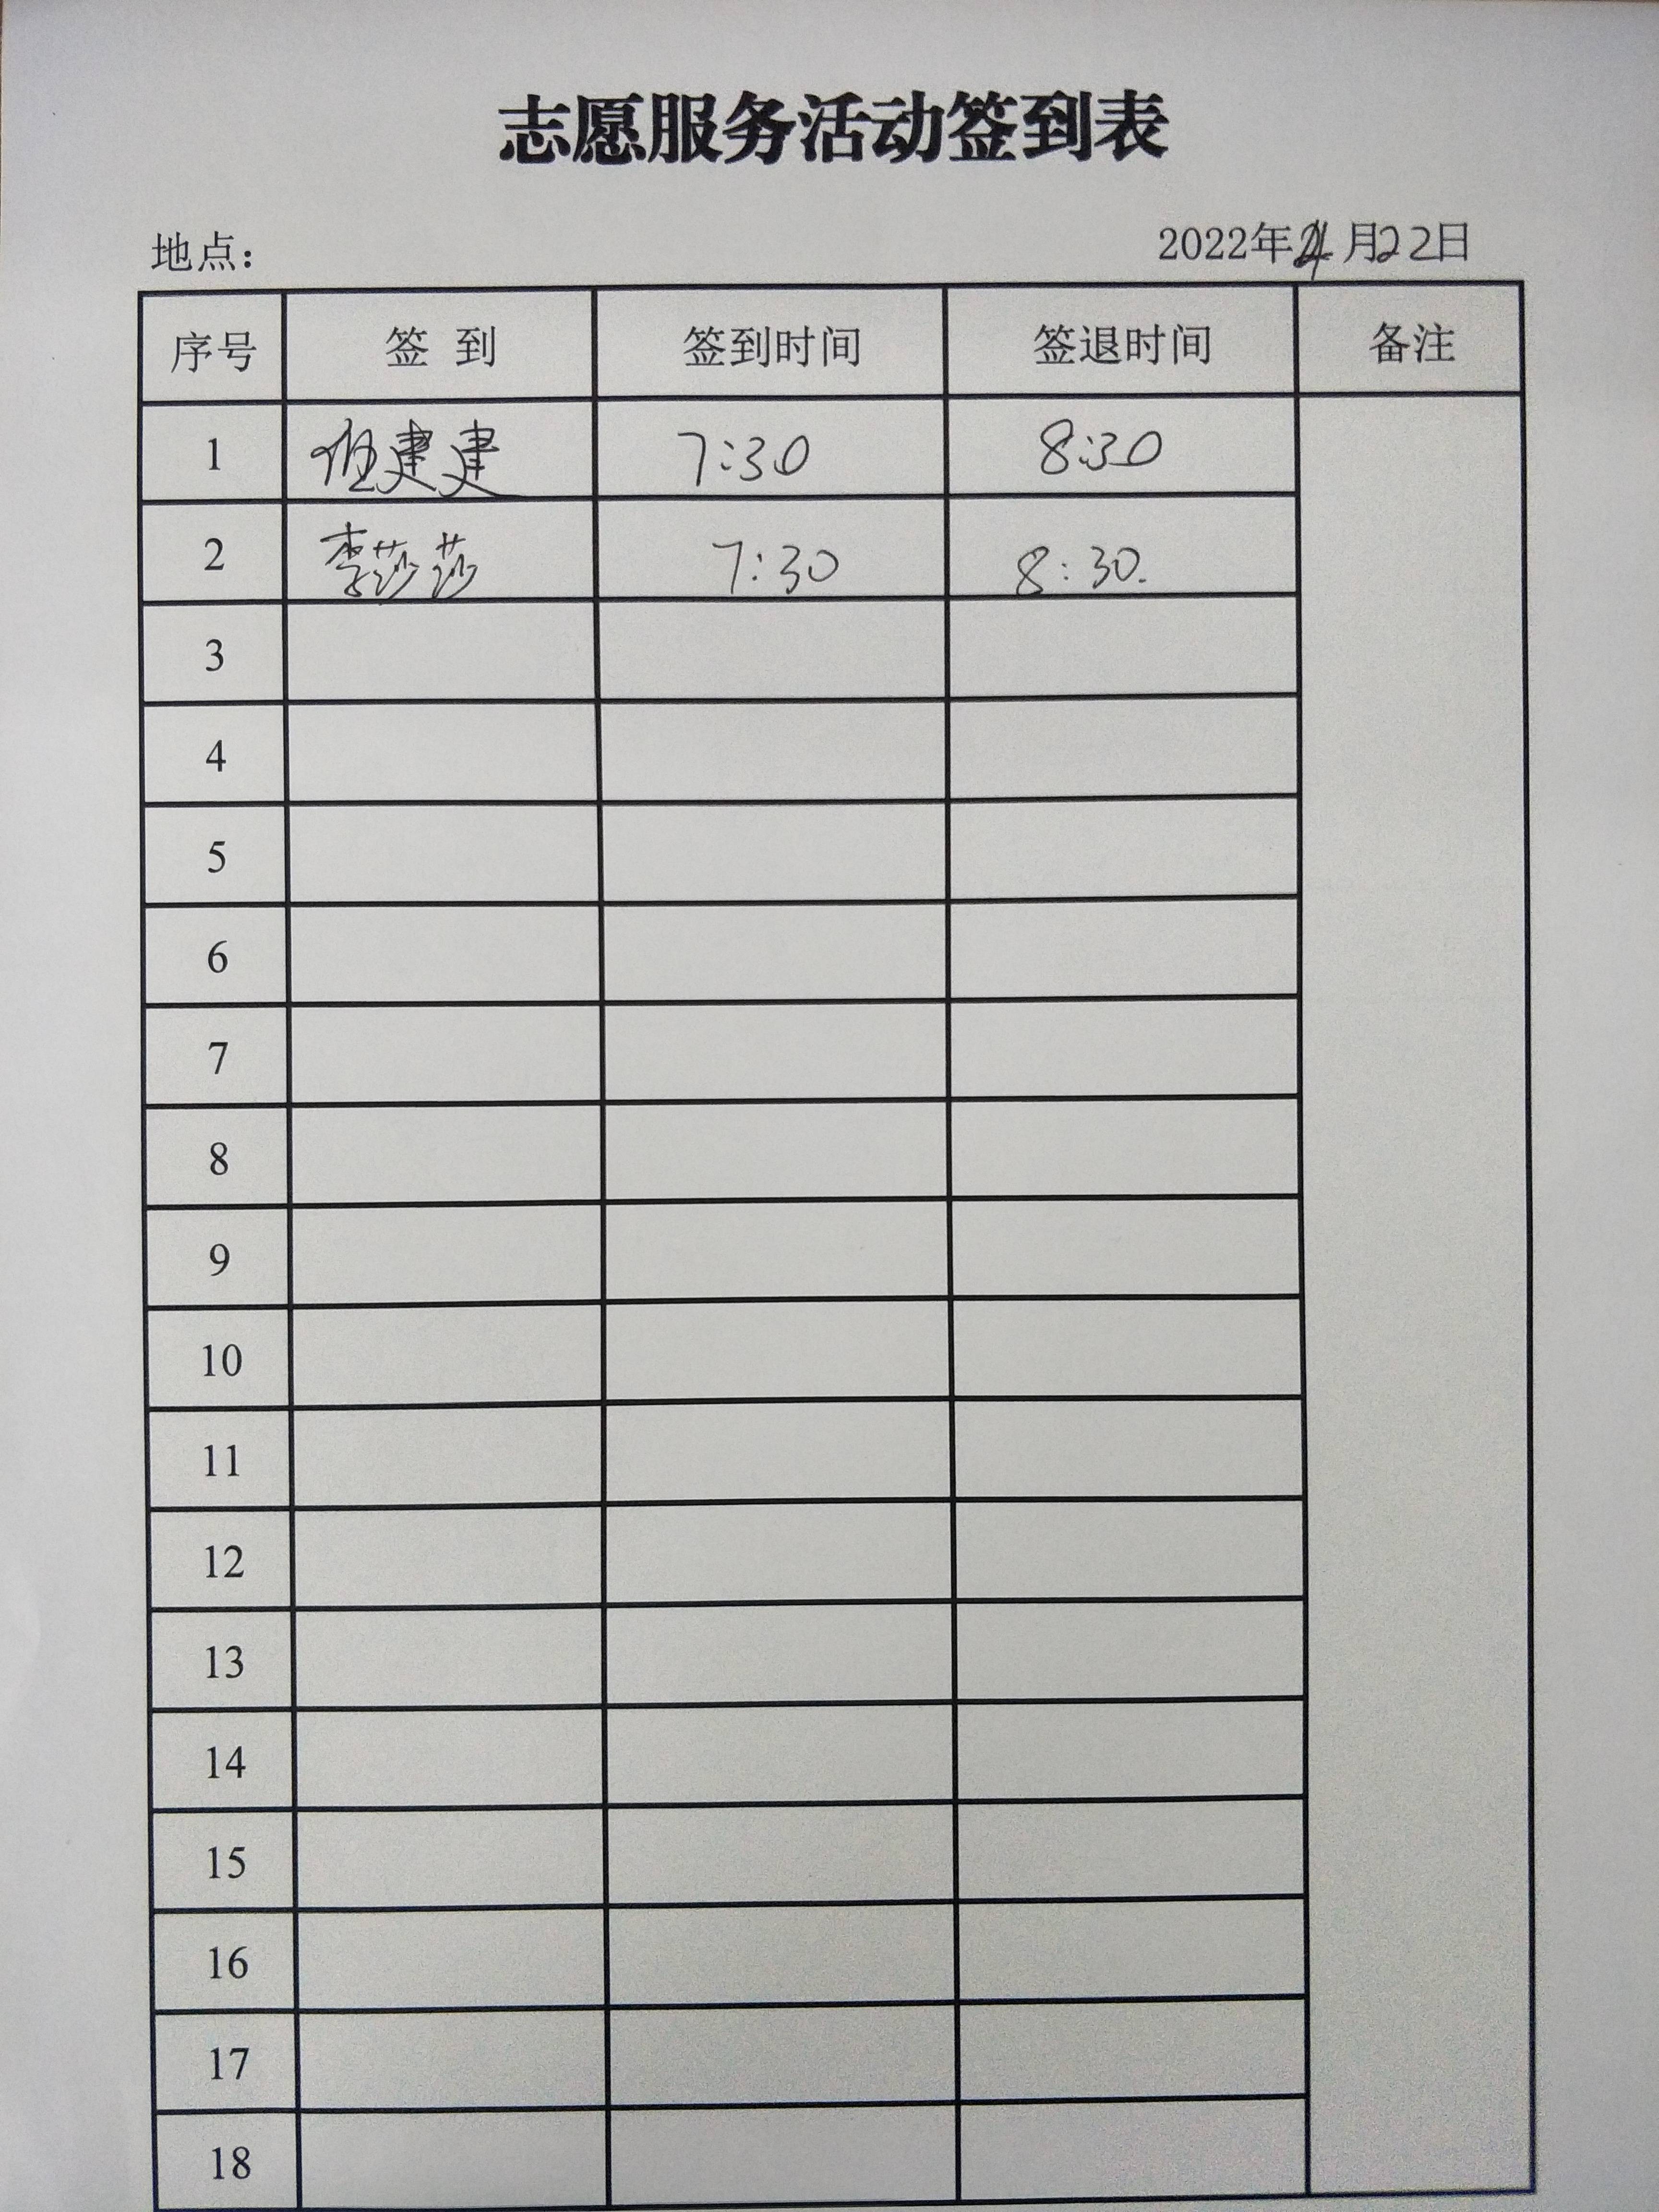 志愿服务活动签到表
地点：
2022年4月22日
序号 签 到 签到时间 签退时间 备注
1 建建 7:30 8:30
2 李莎莎 7:30 8:30.
3
4
5
6
7
8
9
10
11
12
13
14
15
16
17
18